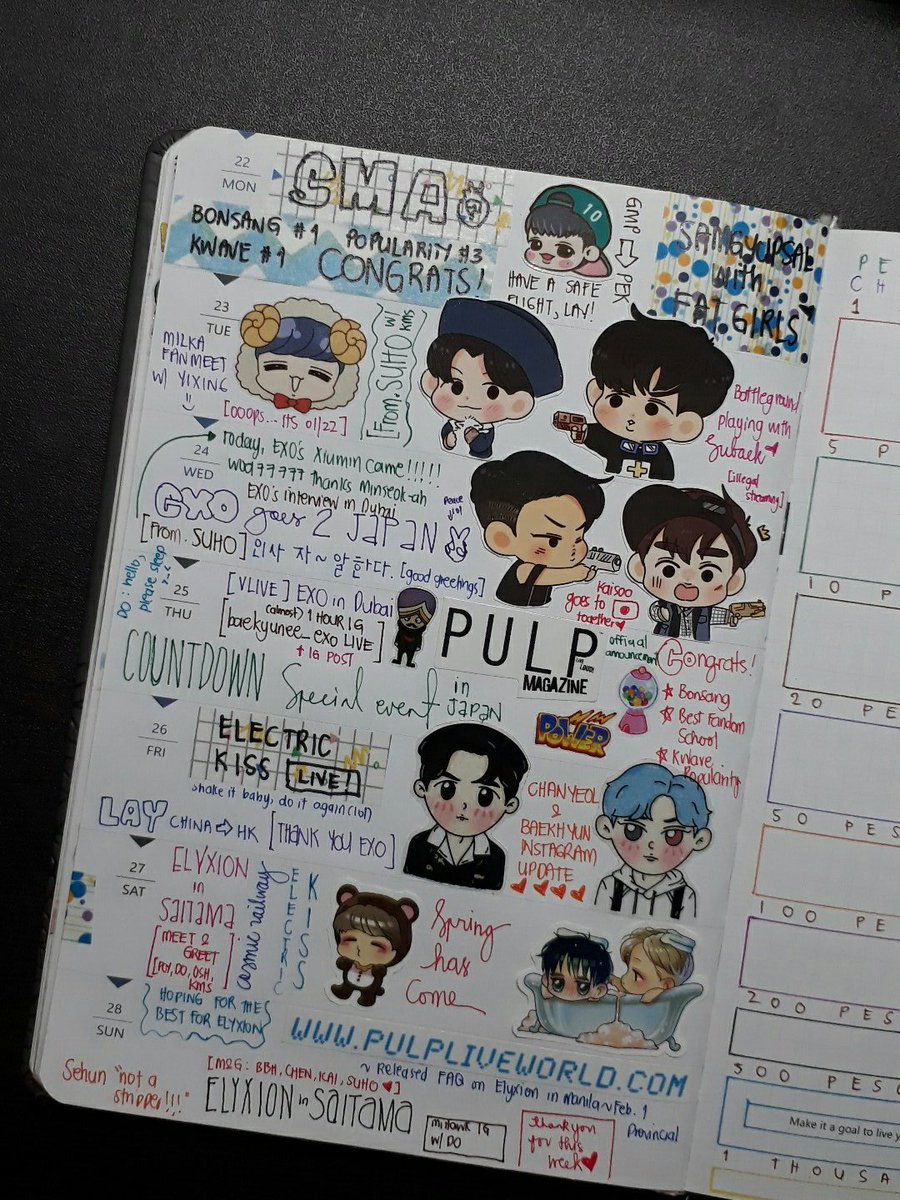 22
MON
SMA
BONSANG #1
POPULARITY #3
KWAVE #1
CONGRATS!
10
GMP ⇨ PEK
HAVE A SAFE
FLIGHT, LAY!
SAMGYUPSAL
with
FAT GIRLS
23
TUE
MILKA
FANMEET
W/ YIXING
[OOOps... its 01/22]
[From. SUHO] w/ kms
Battleground
playing with
Subaek
[illegal
streaming]
24
WED
Today, EXO's Xiumin came!!!!!
thanks Minseok-ah
EXO's interview in Dubai
EXO goes 2 JAPAN
Peace
[From. SUHO] 인사 자~알 한다. [good greetings]
Kaisoo
goes to
together
25
THU
DO: hello,
please sleep
[VLIVE] EXO in Dubai
(almost) 1 HOUR IG
[baekyunee_exo LIVE]
↑ IG POST
PULP
LIVE WORLD
MAGAZINE
official
announcement
Congrats!
☆ Bonsang
☆ Best Fandom
School
☆ KWave
Popularity
COUNTDOWN Special event in JAPAN
POWER
26
FRI
ELECTRIC
KISS LIVE!
shake it baby, do it again
LAY CHINA ⇨ HK [THANK YOU EXO]
CHANYEOL
&
BAEKHYUN
INSTAGRAM
UPDATE
27
SAT
ELYXION
in
SAITAMA
[MEET &
GREET
PCY, DO, OSH,
KMS]
cosmic railway
ELECTRIC
KISS
Spring
has
Come
28
SUN
HOPING FOR THE
BEST FOR ELYXION
WWW.PULPLIVEWORLD.COM
~ Released FAQ on Elyxion in Manila ~ Feb. 1
Provincial
Sehun "not a
stripper!!!"
[M&G: BBH, CHEN, KAI, SUHO ♥]
ELYXION in SAITAMA
W/ DO
thank you
for this
week ♥
PE
CH
1
5 P
10 P
20 PE
50 PES
100 PE
200 PES
500 PESO
Make it a goal to live y
1 THOUSA